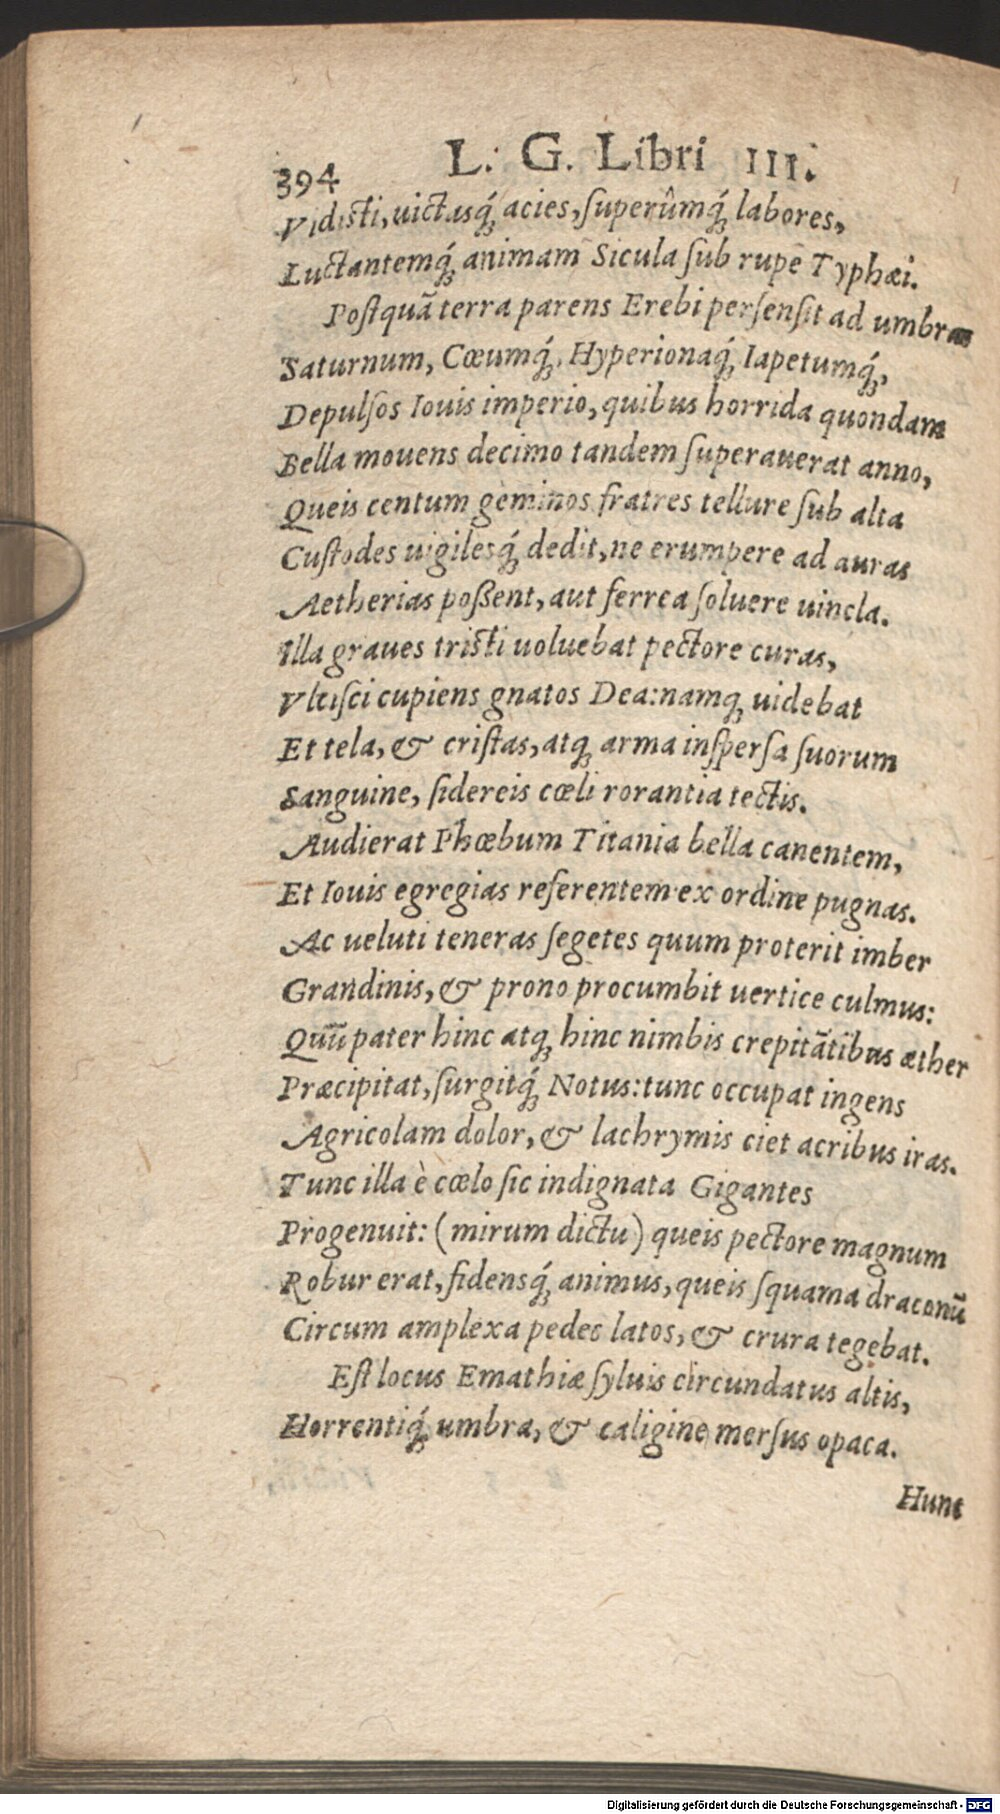 394 L. G. Libri III.
Vidisti, uictasq́; acies, ſuperûmq́; labores,
Luctantemq́; animam Sicula ſub rupe Typhæi.
Poſtquã terra parens Erebi perſenſit ad umbras
Saturnum, Cœumq́;, Hyperionaq́; Iapetumq́;,
Depulſos Iouis imperio, quibus horrida quondam
Bella mouens decimo tandem ſuperauerat anno,
Queis centum geminos fratres tellure ſub alta
Cuſtodes uigilesq́; dedit, ne erumpere ad auras
Aetherias poßent, aut ferrea ſoluere uincla.
Illa graues tristi uoluebat pectore curas,
Vlciſci cupiens gnatos Dea: namq; uidebat
Et tela, & criſtas, atq; arma inſperſa ſuorum
Sanguine, ſidereis cœli rorantia tectis.
Audierat Phœbum Titania bella canentem,
Et Iouis egregias referentem ex ordine pugnas.
Ac ueluti teneras ſegetes quum proterit imber
Grandinis, & prono procumbit uertice culmus:
Quũ pater hinc atq; hinc nimbis crepitãtibus æther
Præcipitat, ſurgitq́; Notus: tunc occupat ingens
Agricolam dolor, & lachrymis ciet acribus iras.
Tunc illa è cœlo ſic indignata Gigantes
Progenuit: (mirum dictu) queis pectore magnum
Robur erat, fidensq́; animus, queis ſquama draconũ
Circum amplexa pedes latos, & crura tegebat.
Eſt locus Emathiæ ſyluis circundatus altis,
Horrentiq́; umbra, & caligine merſus opaca.
Hunc
Digitalisierung gefördert durch die Deutsche Forschungsgemeinschaft - DFG